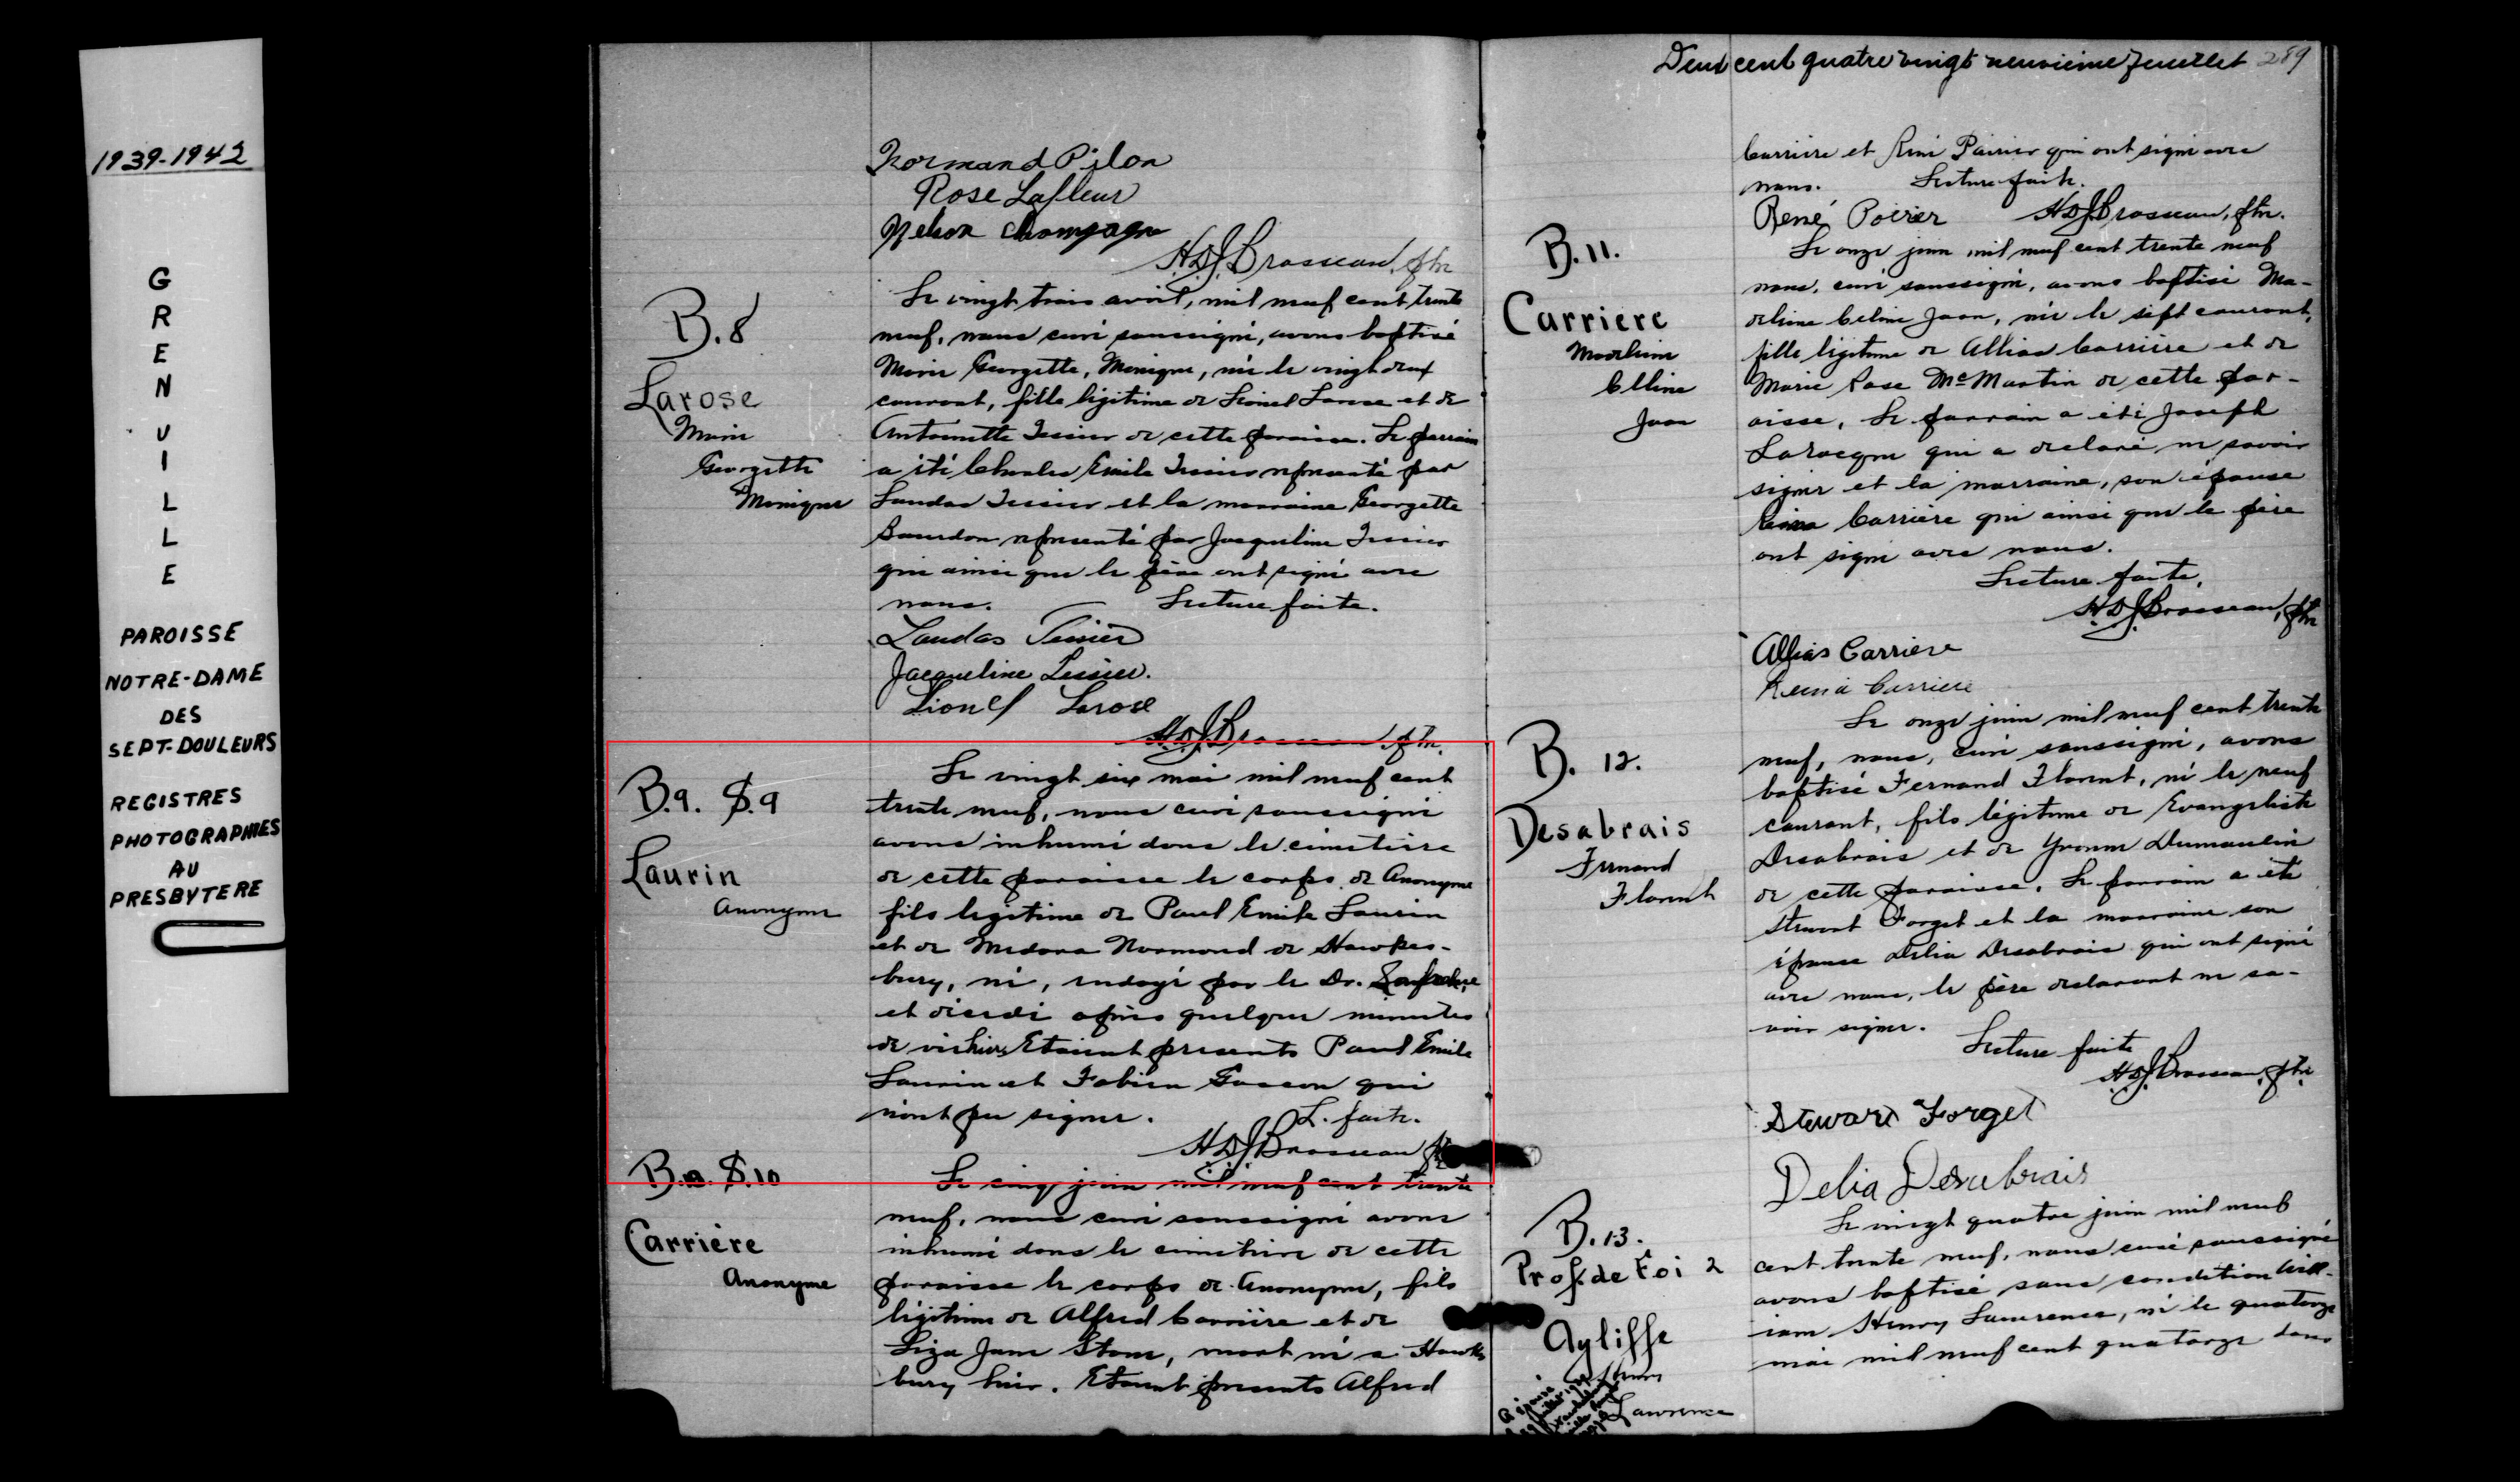 1939-1942
G
R
E
N
V
I
L
L
E
PAROISSE
NOTRE-DAME
DES
SEPT-DOULEURS
REGISTRES
PHOTOGRAPHIÉS
AU
PRESBYTERE
Normand Pilon
Rose Lafleur
Nelson Champagne
H.D.J. Brosseau, ptre
B.8
Larose
Marie
Georgette
Monique
Le vingt trois avril, mil neuf cent trente
neuf, nous curé soussigné, avons baptisé
Marie Georgette, Monique, née le vingt deux
courant, fille légitime de Lionel Larose et de
Antoinette Tessier de cette paroisse. Le parrain
a été Charles Emile Tessier représenté par
Landas Tessier et la marraine Georgette
Bourdon représenté par Jacqueline Tessier
qui ainsi que le père ont signé avec
nous. Lecture faite.
Landas Tessier
Jacqueline Tessier.
Lionel Larose
H.D.J. Brosseau, ptre.
B.9. S.9
Laurin
Anonyme
Le vingt six mai mil neuf cent
trente neuf, nous curé soussigné
avons inhumé dans le cimetière
de cette paroisse le corps de Anonyme
fils légitime de Paul Emile Laurin
et de Medora Normand de Hawkes-
bury, né, ondoyé par le Dr.
et décédé après quelques minutes
de vie hier. Etaient présents Paul Emile
Laurin et Fabien Gascon qui
n'ont pu signer. L. faite.
H.D.J. Brosseau ptre
B.10. S.10
Carrière
Anonyme
Le cinq juin mil neuf cent trente
neuf, nous curé soussigné avons
inhumé dans le cimetière de cette
paroisse le corps de Anonyme, fils
légitime de Alfred Carrière et de
Liza Jane Stone, mort né a Hawks
bury hier. Etaient présents Alfred
Deux cent quatre vingt neuvième feuillet 289
Carrière et René Poirier qui ont signé avec
nous. Lecture faite.
René Poirier H.D.J. Brosseau, ptre.
B.11.
Carriere
Madeleine
Celline
Joan
Le onze juin mil neuf cent trente neuf
nous, curé soussigné, avons baptisé Ma-
deleine Celine Joan, née le sept courant,
fille légitime de Allias Carrière et de
Marie Rose McMartin de cette par-
oisse, Le parrain a été Joseph
Larocque qui a declaré ne savoir
signer et la marraine, son épouse
Carrière qui ainsi que le père
ont signé avec nous.
Lecture faite,
H.D.J. Brosseau, ptre
Allias Carriere
Carriere
B. 12.
Desabrais
Fernand
Florent
Le onze juin mil neuf cent trente
neuf, nous, curé soussigné, avons
baptisé Fernand Florent, né le neuf
courant, fils légitime de Evangeliste
Desabrais et de Yvonne Dumoulin
de cette paroisse. Le parrain a été
Stewart Forget et la marraine son
épouse Délia Desabrais qui ont signé
avec nous, le père declarant ne sa-
voir signer.
Lecture faite
H.D.J. Brosseau, ptre
Stewart Forget
Delia Desabrais
B.13.
Prof. de Foi 2
Ayliffe
Henry
Lawrence
Le vingt quatre juin mil neuf
cent trente neuf, nous curé soussigné
avons baptisé sous condition Will-
iam Henry Lawrence, né le quatorze
mai mil neuf cent quatorze dans